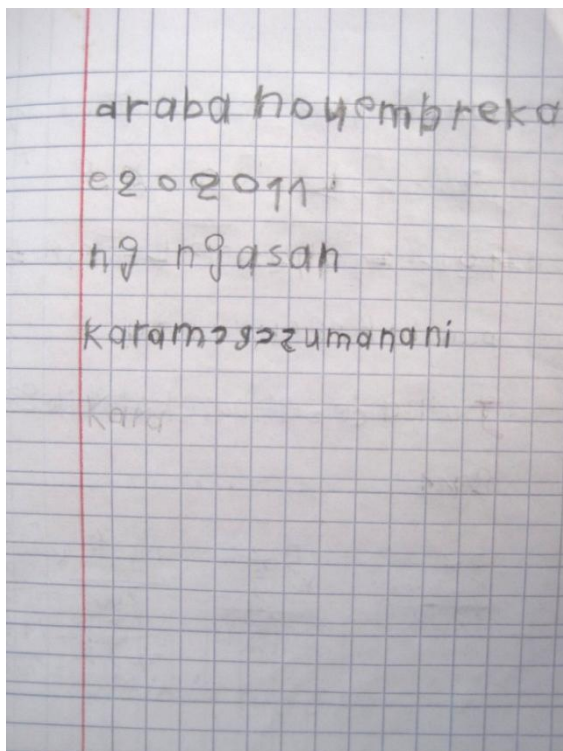 araba nouembreka
e2 o 2011
ng ngasan
karamɔgɔzumanani
Kara